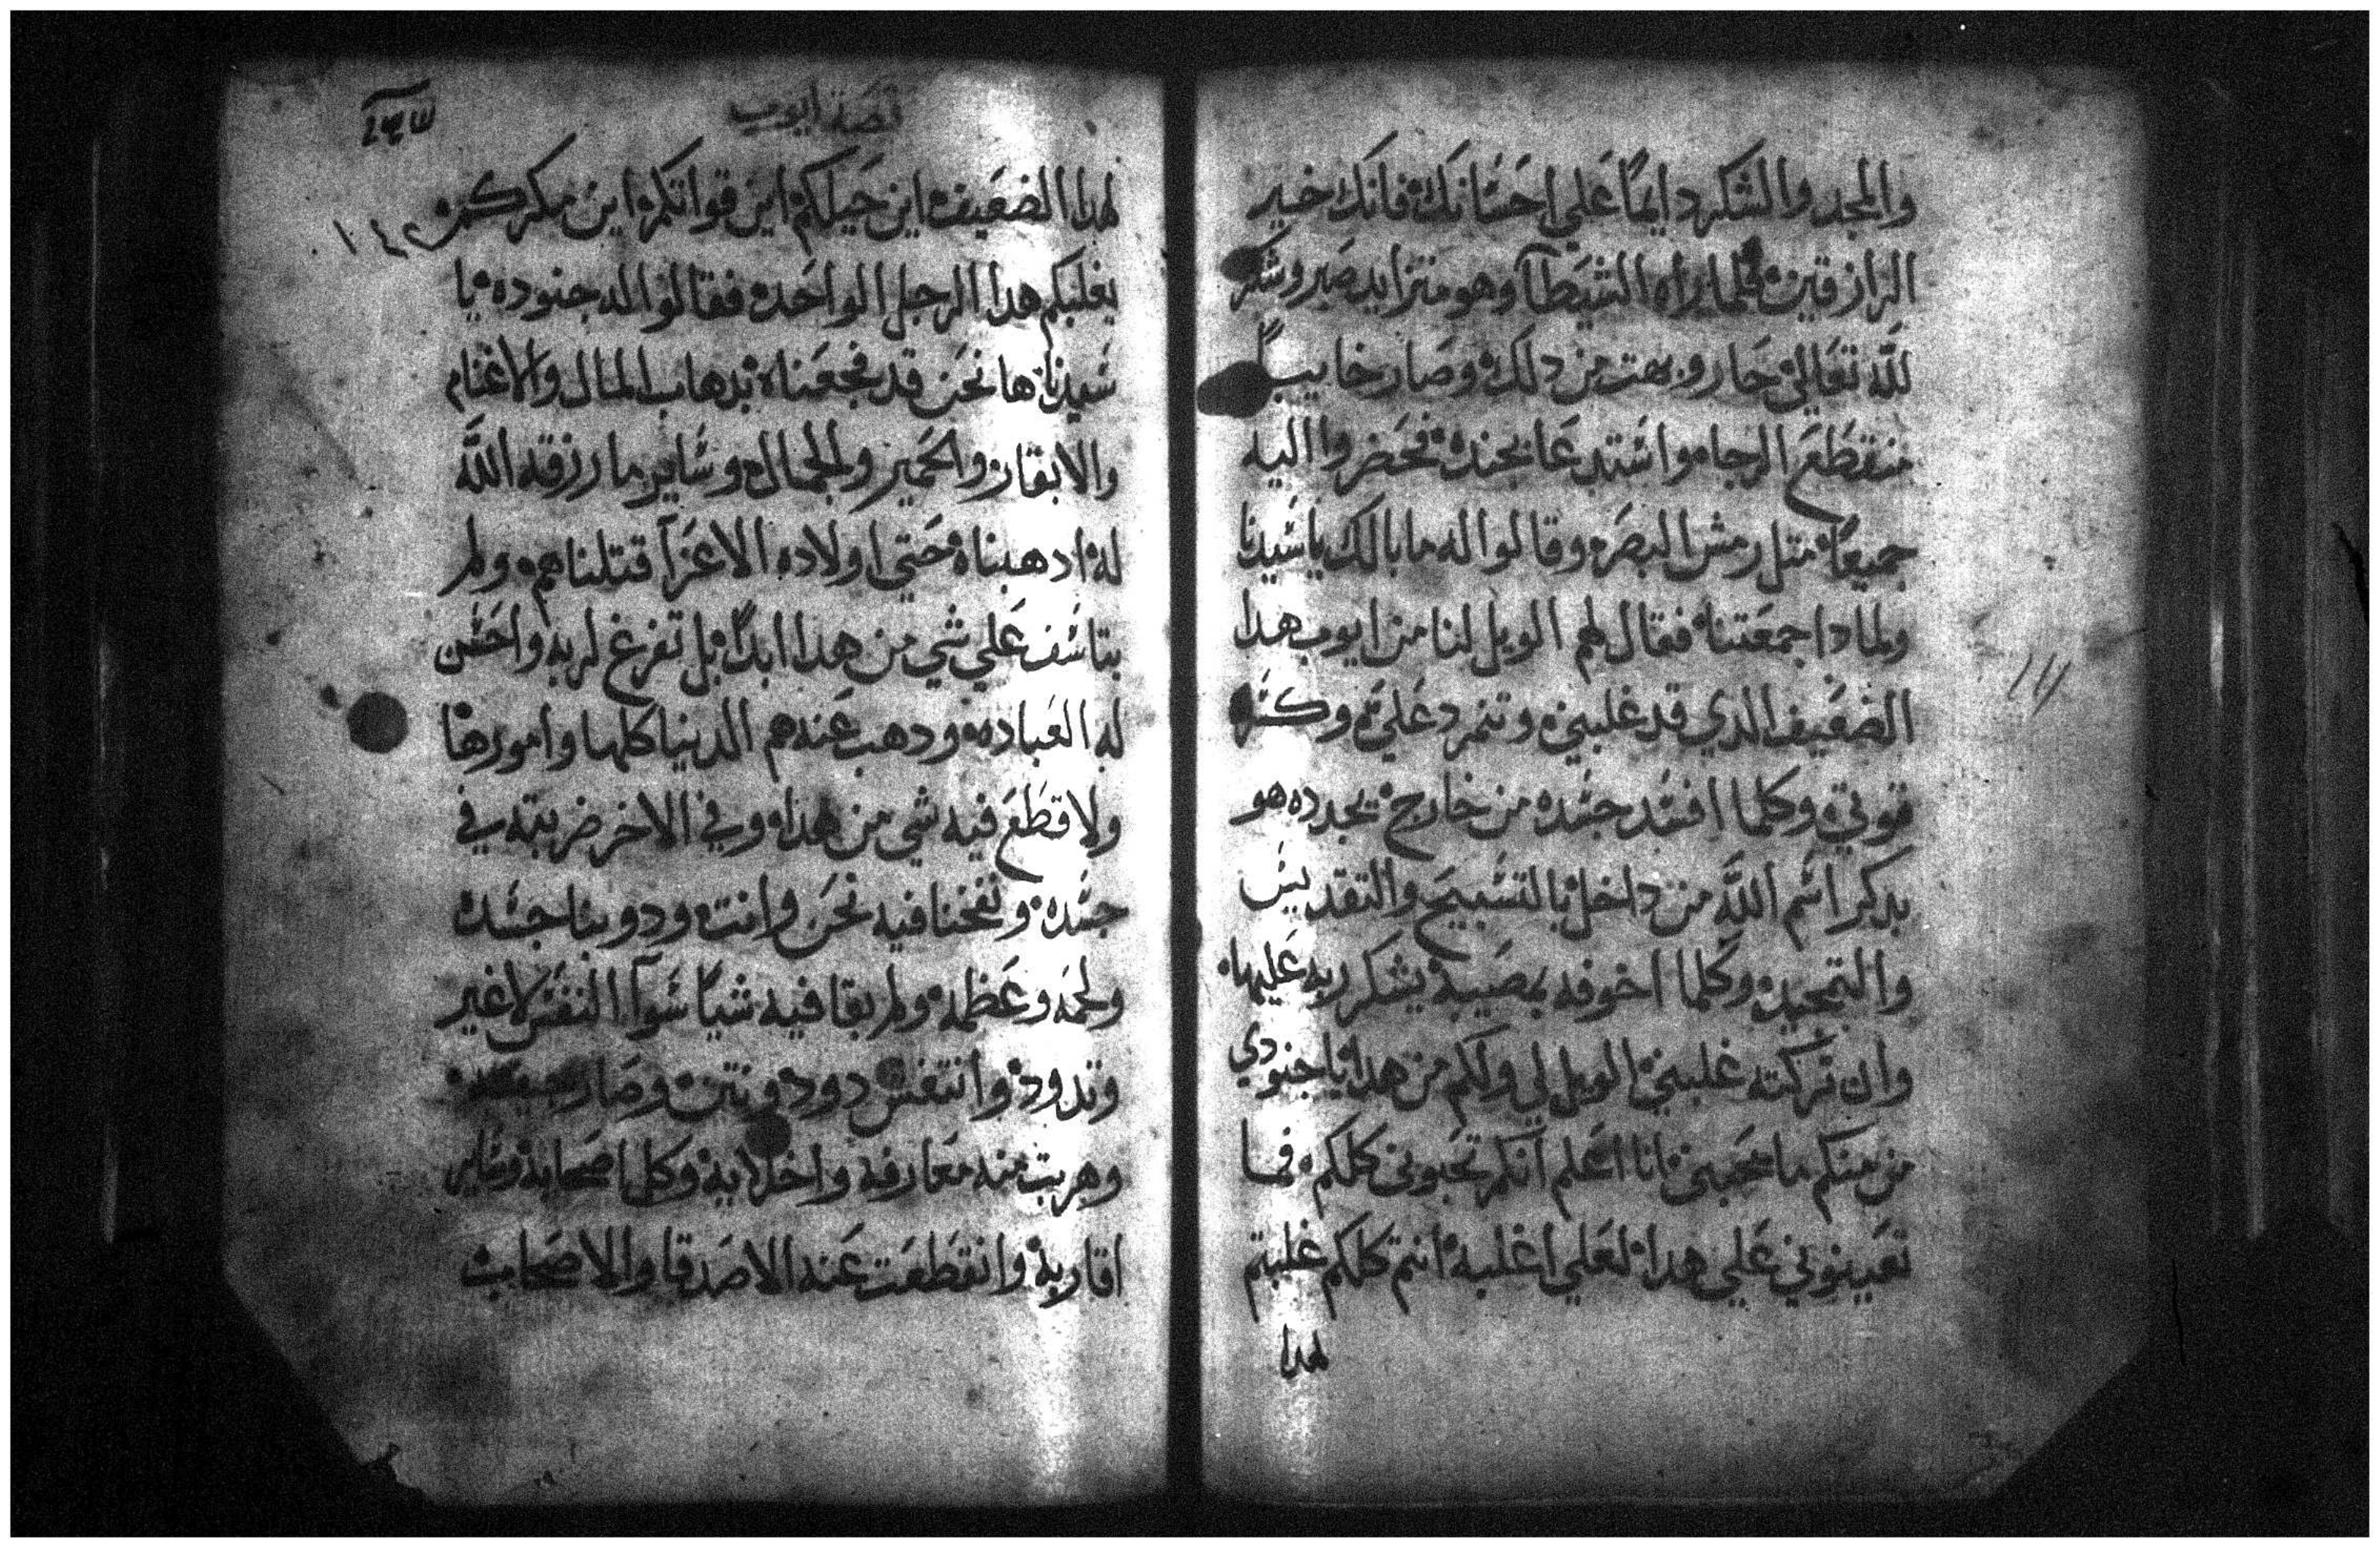 والمجد والشكر دايمًا علي احسانك فانك خير
الرازقين فلما يراه الشيطان وهو متزايد صبر وشكر
للّه تعالي حار وبهت من دلك وصار خايبًا
منقطع الرجاه واستدعا بجنده فحضروا اليه
جميعًا متل رمش البصر وقالوا له ما بالك يا سيدنا
ولمادا جمعتنا فقال لهم الويل لنا من ايوب هدا
الضعيف الدي قد غلبني وتنمرد علي وكسر
قوتي وكلما افسد جسده من خارج يجدده هو
بدكر اسم اللّه من داخل بالتسبيح والتقديس
والتمجيد وكلما اخوفه بمصيبه يشكر ربه عليها
وان تركته غلبني الويل لي ولكم من هدا يا جنودي
من منكم ما يحبني انا اعلم انكم تحبوني كلكم فما
تعينوني علي هدا لعلي اغلبه انتم كلكم غلبتم
لهدا
قصة ايوب
لهدا الضعيف اين حيلكم اين قواتكم اين مكركم
١٤٢
يغلبكم هدا الرجل الواحد فقالوا له جنوده يا
سيدنا ها نحن قد فجعناه بدهاب المال والاغنام
والابقار والحمير والجمال وساير ما رزقه اللّه
له ادهبناه حتي اولاده الاعزآ قتلناهم ولم
يتاسف علي شي من هدا ابدًا بل تفرغ لربه واحسن
له العباده ودهب عنه هم الدنيا كلها وامورها
ولا قطع فيه شي من هدا وفي الاخر ضربته في
جسده ونفخنا فيه نحن وانت ودوبنا جسده
ولحمه وعظمه ولم يقا فيه شيًا سوآ النفس لا غير
وتدود وانتفس دود ونتن وصار
وهربت منه معارفه واخلايه وكل اصحابه وساير
اقاربه وانقطعت عنه الاصدقا والاصحاب